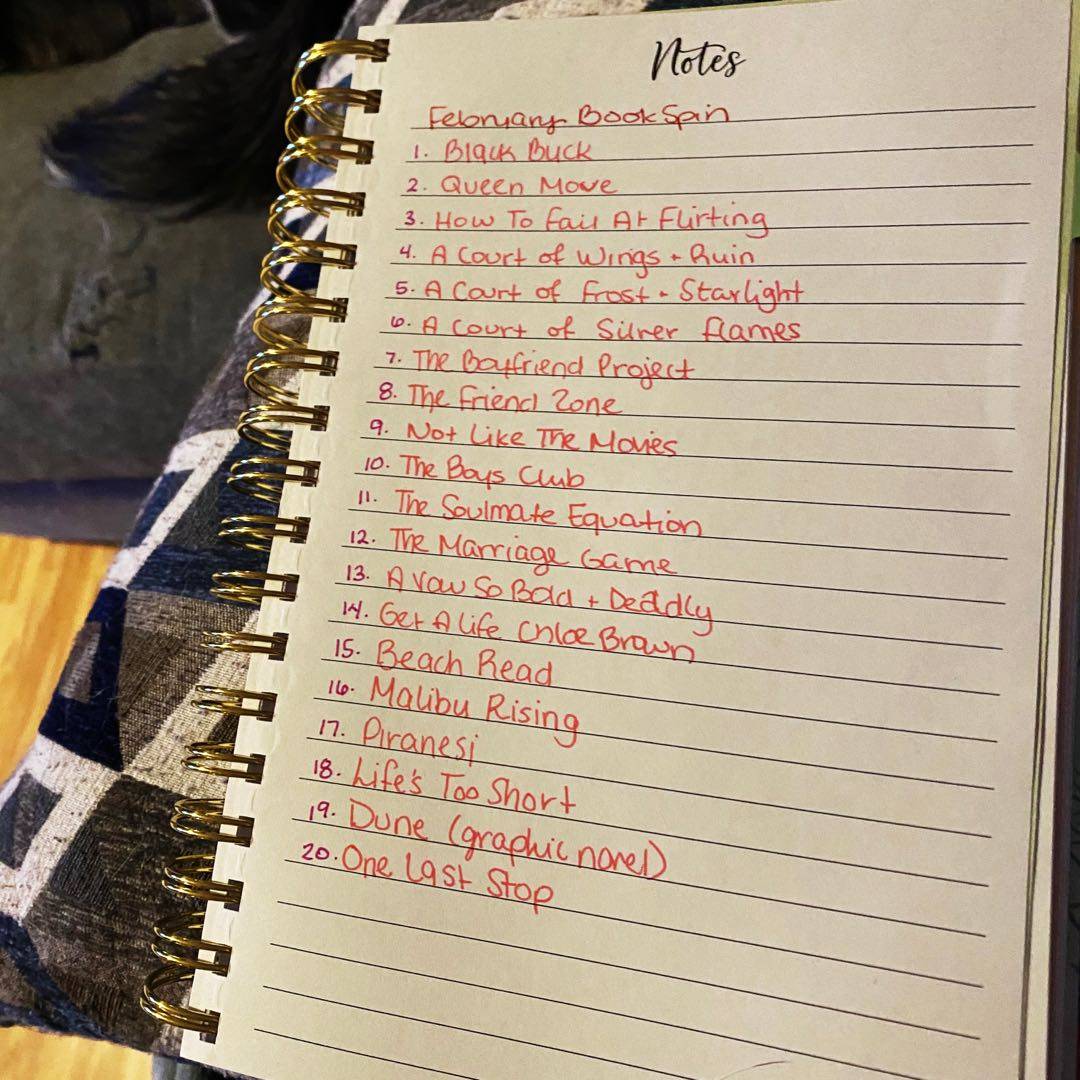 Notes
February Book Spin
1. Black Buck
2. Queen Move
3. How To Fail At Flirting
4. A Court of Wings + Ruin
5. A Court of Frost + Starlight
6. A Court of Silver Flames
7. The Boyfriend Project
8. The Friend Zone
9. Not Like The Movies
10. The Boys Club
11. The Soulmate Equation
12. The Marriage Game
13. A Vow So Bold + Deadly
14. Get A Life Chloe Brown
15. Beach Read
16. Malibu Rising
17. Piranesi
18. Life's Too Short
19. Dune (graphic novel)
20. One Last Stop